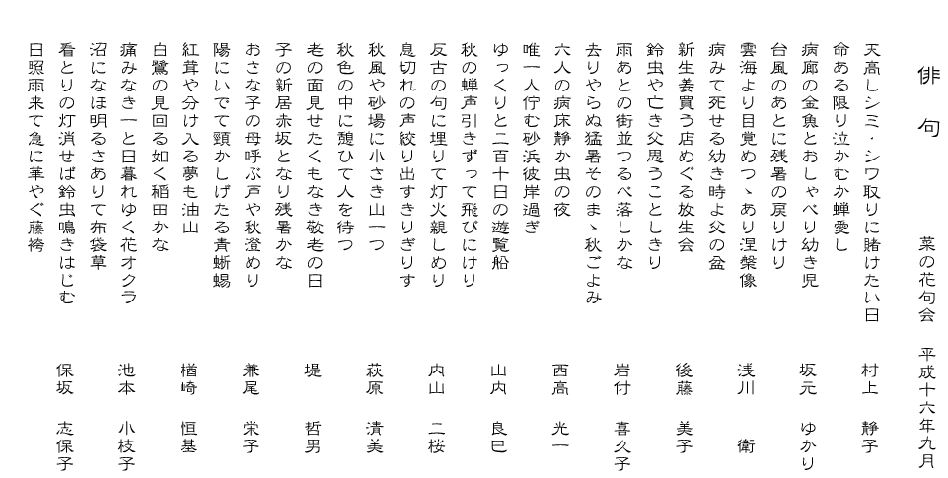 俳句
菜の花句会 平成十六年九月
天高しシミ・シワ取りに賭けたい日
村上 静子
命ある限り泣かむか蝉愛し
病廊の金魚とおしゃべり幼き児
坂元 ゆかり
台風のあとに残暑の戻りけり
雲海より目覚めつゝあり涅槃像
浅川 衛
病みて死せる幼き時よ父の盆
新生姜買う店めぐる放生会
後藤 美子
鈴虫や亡き父思うことしきり
雨あとの街並つるべ落しかな
岩付 喜久子
去りやらぬ猛暑そのまゝ秋ごよみ
六人の病床静か虫の夜
西高 光一
唯一人佇む砂浜彼岸過ぎ
ゆっくりと二百十日の遊覧船
山内 良巳
秋の蝉声引きずって飛びにけり
反古の句に埋りて灯火親しめり
内山 二桜
息切れの声絞り出すきりぎりす
秋風や砂場に小さき山一つ
萩原 清美
秋色の中に憩ひて人を待つ
老の面見せたくもなき敬老の日
堤 哲男
子の新居赤坂となり残暑かな
おさな子の母呼ぶ戸や秋澄めり
兼尾 栄子
陽にいでて頸かしげたる青蜥蜴
紅茸や分け入る夢も油山
楢崎 恒基
白鷺の見回る如く稲田かな
痛みなき一と日暮れゆく花オクラ
池本 小枝子
沼になほ明るさありて布袋草
看とりの灯消せば鈴虫鳴きはじむ
保坂 志保子
日照雨来て急に華やぐ藤袴